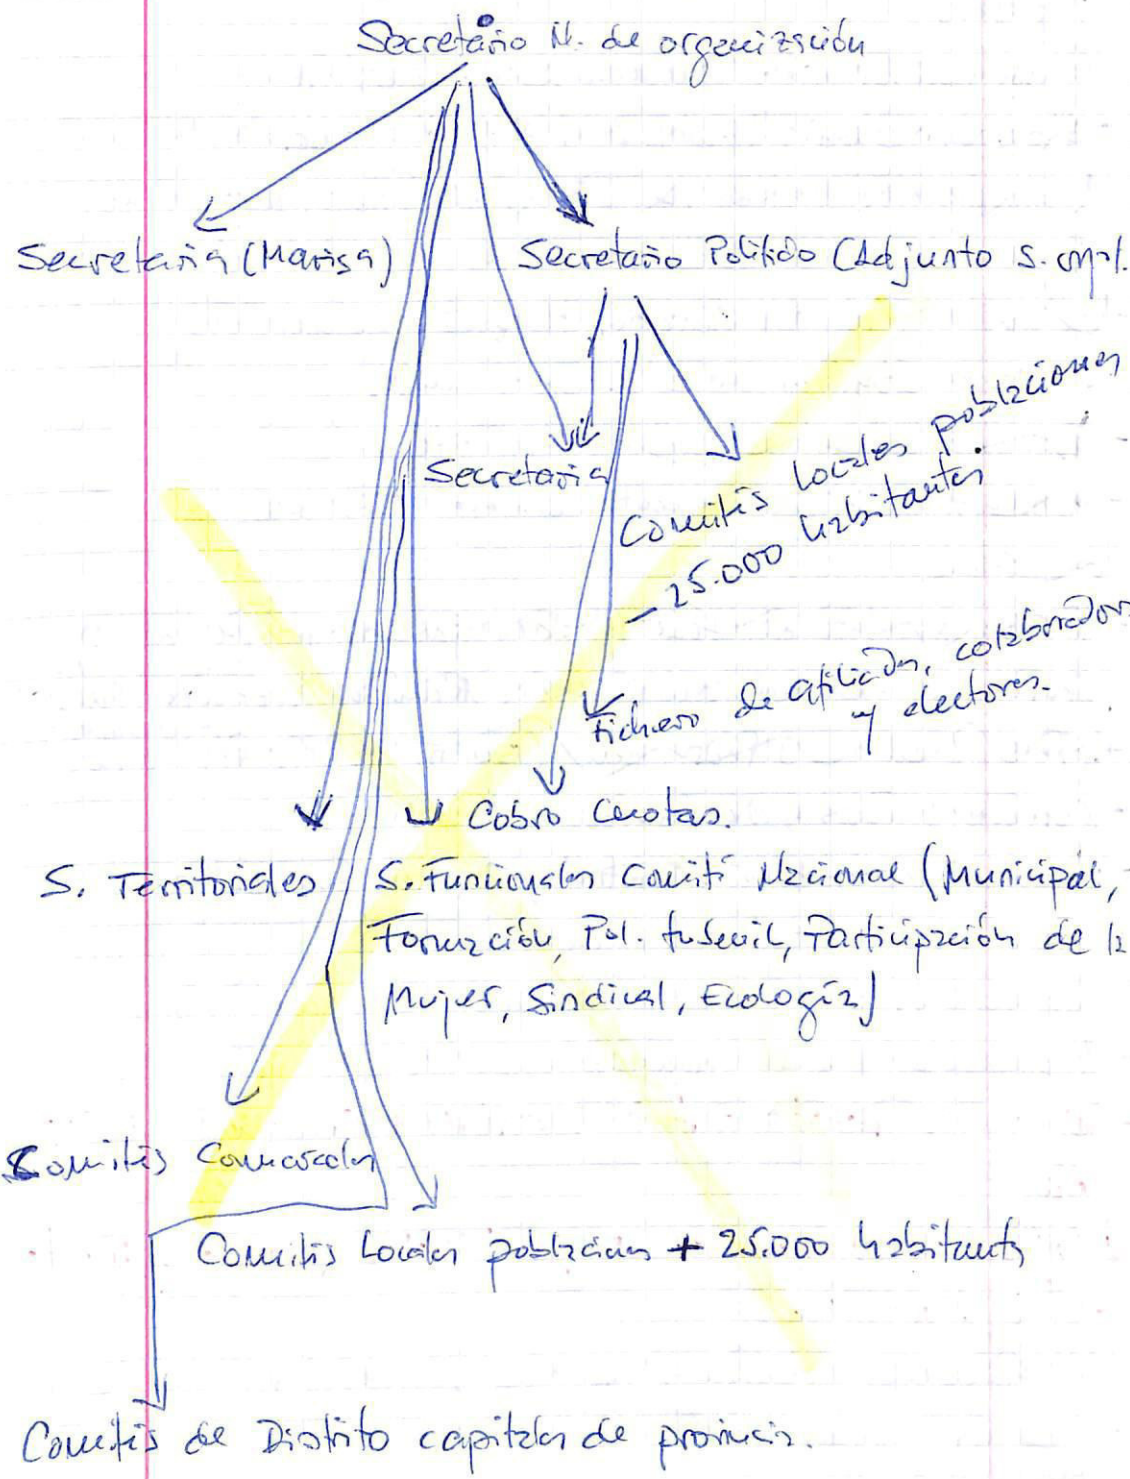 Secretario N. de organización
Secretaria (Marisa)
Secretario Político (Adjunto S.
Secretaria
Comités Locales poblaciones
- 25.000 habitantes
Fichero de afiliados, colaboradores
y electores.
Cobro Cuotas.
S. Territoriales
S. Funcionales Comité Nacional (Municipal,
Formación, Pol. Juvenil, Participación de la
Mujer, Sindical, Ecología)
Comités Comarcales
Comités Locales poblaciones + 25.000 habitantes
Comités de Distrito capitales de provincia.